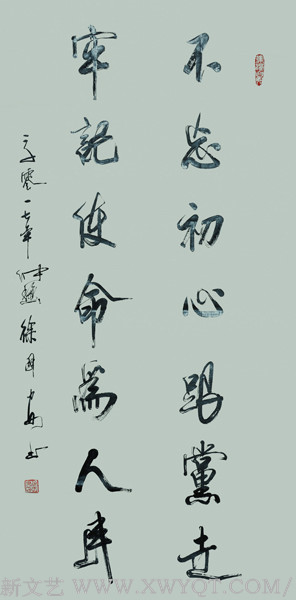 不忘初心跟黨走
牢記使命為人民
零一七年仲 徐 書
新文艺 WWW.XWYQT.COM/